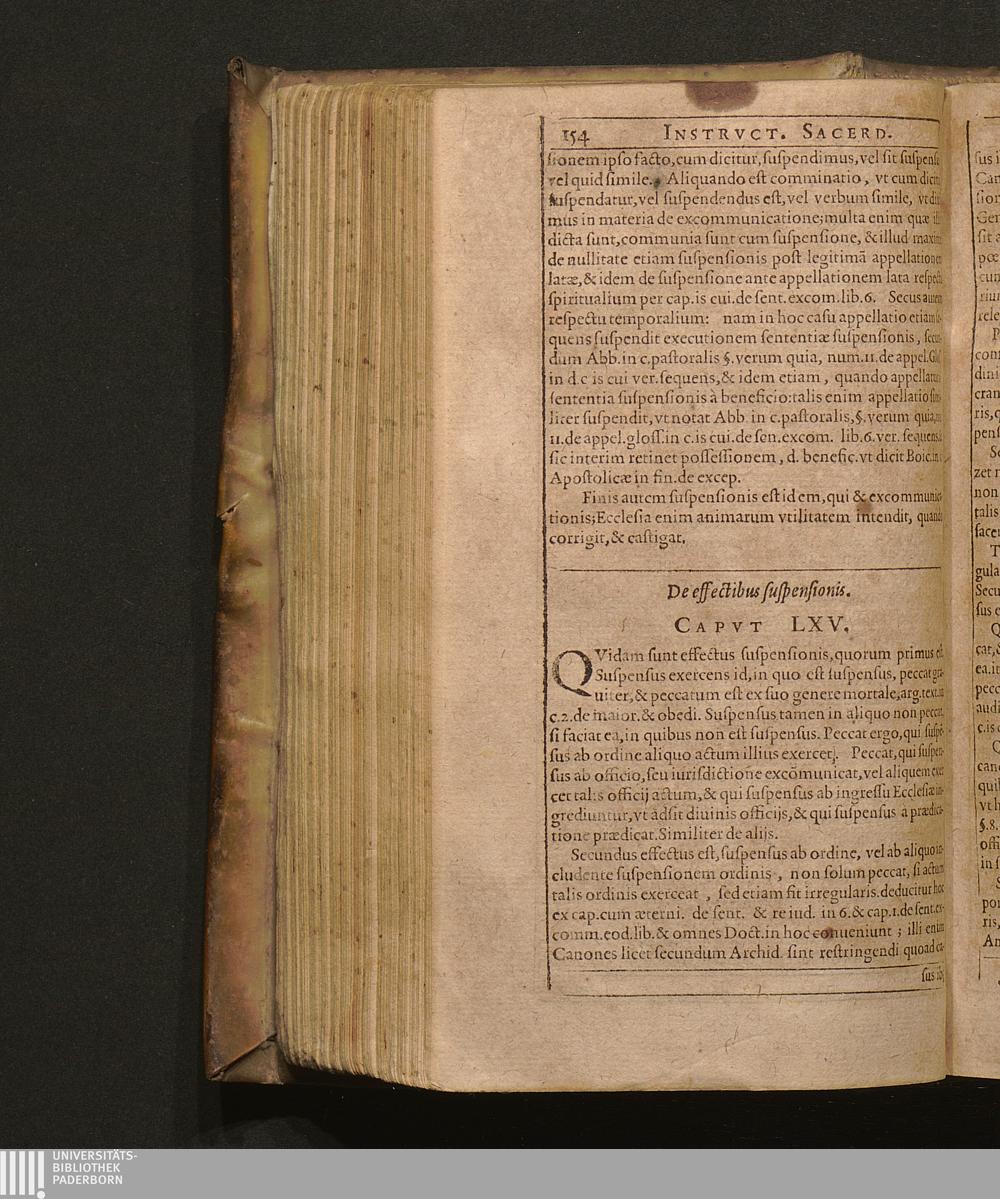 154 INSTRVCT. SACERD.
sionem ipso facto, cum dicitur, suspendimus, vel sit suspens
vel quid simile. Aliquando est comminatio, vt cum dici
suspendatur, vel suspendendus est, vel verbum simile, vt di
mus in materia de excommunicatione; multa enim quæ
dicta sunt, communia sunt cum suspensione, & illud maxi
de nullitate etiam suspensionis post legitimã appellationem
latæ, & idem de suspensione ante appellationem lata respectu
spiritualium per cap. is cui. de sent. excom. lib. 6. Secus autem
respectu temporalium: nam in hoc casu appellatio etiam
quens suspendit executionem sententiæ suspensionis, secun
dum Abb. in c. pastoralis §. verum quia, num. 11. de appel. Glos
in d. c is cui ver. sequens, & idem etiam, quando appellatur
sententia suspensionis à beneficio: talis enim appellatio
liter suspendit, vt notat Abb. in c. pastoralis, §. verum quia,
11. de appel. gloss. in c. is cui. de sen. excom. lib. 6. ver. sequens.
sic interim retinet possessionem, d. benefic. vt dicit Boic. in
Apostolicæ in fin. de excep.
Finis autem suspensionis est idem, qui & excommunica
tionis; Ecclesia enim animarum vtilitatem intendit, quando
corrigit, & castigat.
De effectibus suspensionis.
CAPVT LXV.
QVidam sunt effectus suspensionis, quorum primus est.
Suspensus exercens id, in quo est suspensus, peccat gra-
uiter, & peccatum est ex suo genere mortale, arg. text. in
c. 2. de maior. & obedi. Suspensus tamen in aliquo non peccat,
si faciat ea, in quibus non est suspensus. Peccat ergo, qui suspẽ-
sus ab ordine aliquo actum illius exercet. Peccat, qui suspen-
sus ab officio, seu iurisdictione excõmunicat, vel aliquem exer
cet talis officij actum, & qui suspensus ab ingressu Ecclesiæ in-
grediuntur, vt adsit diuinis officijs, & qui suspensus a prædica-
tione prædicat. Similiter de alijs.
Secundus effectus est, suspensus ab ordine, vel ab aliquo in-
cludente suspensionem ordinis, non solum peccat, si actum
talis ordinis exerceat, sed etiam fit irregularis. deducitur hoc
ex cap. cum æterni. de sent. & re iud. in 6. & cap. 1. de sent. ex-
comm. eod. lib. & omnes Doct. in hoc conueniunt; illi enim
Canones licet secundum Archid. sint restringendi quoad ca-
sus ib
UNIVERSITÄTS-
BIBLIOTHEK
PADERBORN